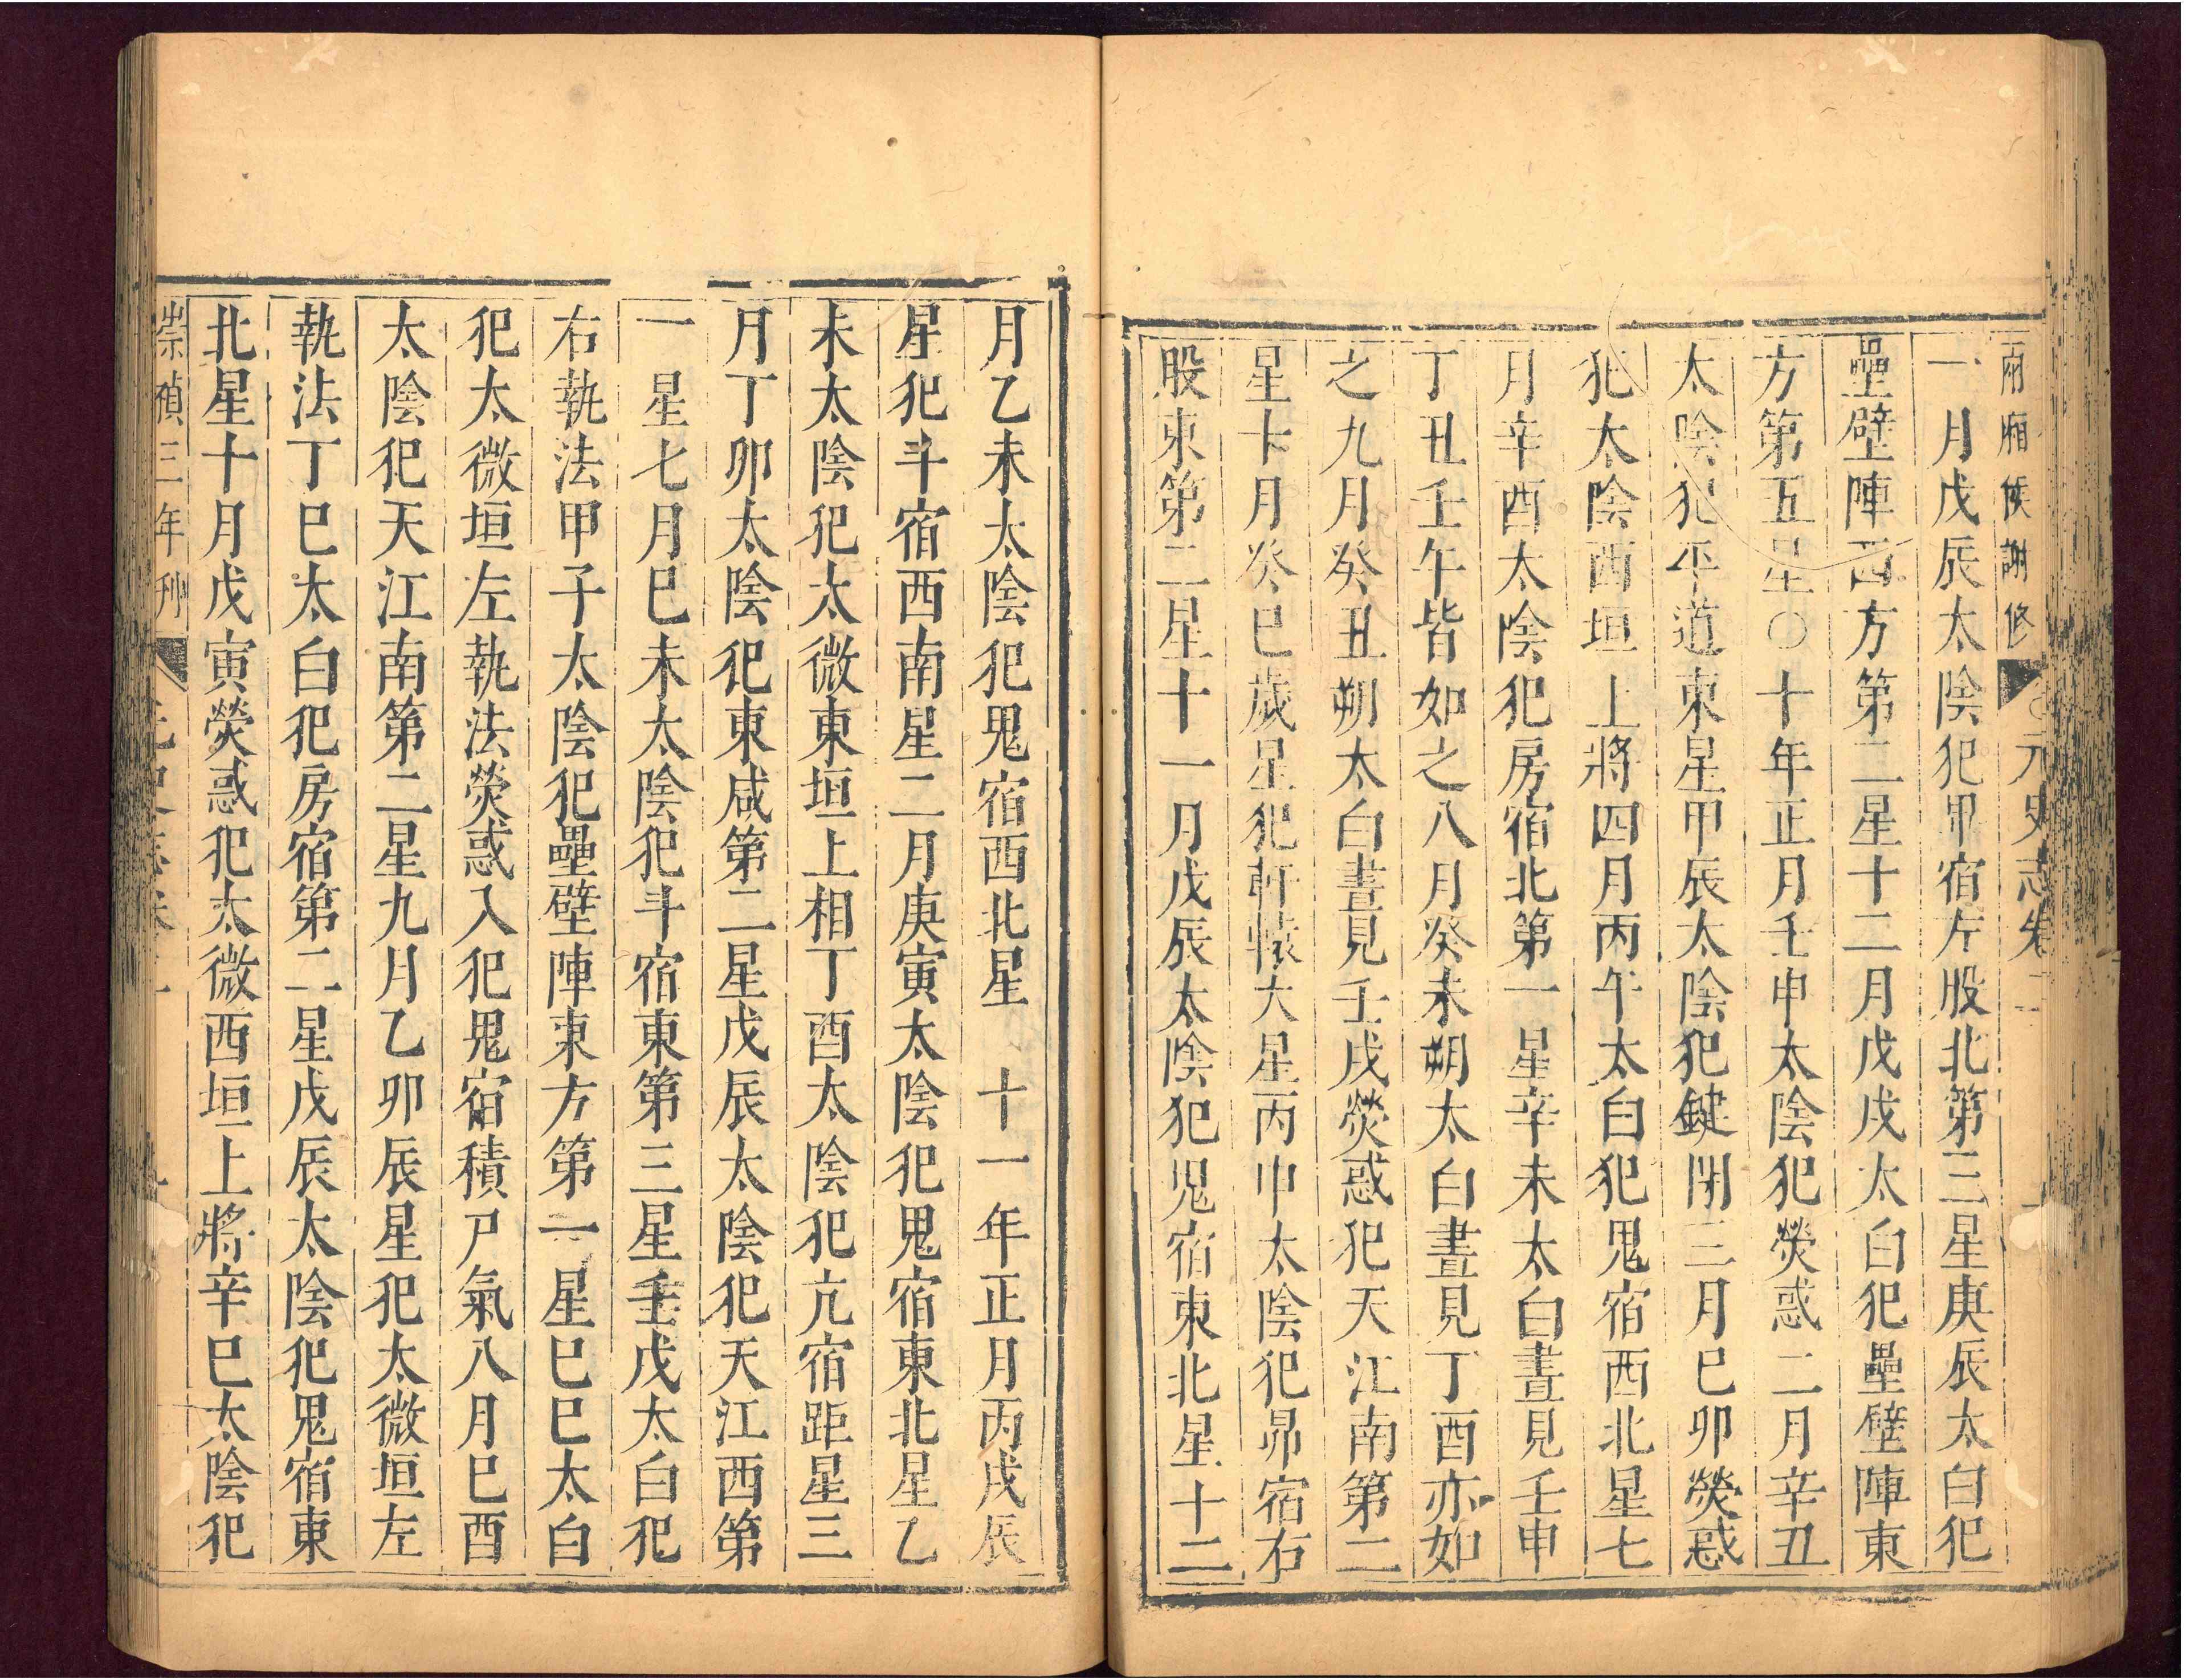 雨廂候謝修
元史志卷二
一月戊辰太陰犯畢宿左股北第三星庚辰太白犯
壘壁陣西方第二星十二月戊戌太白犯壘壁陣東
方第五星〇十年正月壬申太陰犯熒惑二月辛丑
太陰犯平道東星甲辰太陰犯鍵閉三月巳卯熒惑
犯太陰西垣上將四月丙午太白犯鬼宿西北星七
月辛酉太陰犯房宿北第一星辛未太白晝見壬申
丁丑壬午皆如之八月癸未朔太白晝見丁酉亦如
之九月癸丑朔太白晝見壬戌熒惑犯天江南第二
星十月癸巳歲星犯軒轅大星丙申太陰犯昴宿右
股東第二星十一月戊辰太陰犯鬼宿東北星十二
月乙未太陰犯鬼宿西北星 十一年正月丙戌辰
星犯斗宿西南星二月庚寅太陰犯鬼宿東北星乙
未太陰犯太微東垣上相丁酉太陰犯亢宿距星三
月丁卯太陰犯東咸第二星戊辰太陰犯天江西第
一星七月巳未太陰犯斗宿東第三星壬戌太白犯
右執法甲子太陰犯壘壁陣東方第一星巳巳太白
犯太微垣左執法熒惑入犯鬼宿積尸氣八月巳酉
太陰犯天江南第二星九月乙卯辰星犯太微垣左
執法丁巳太白犯房宿第二星戊辰太陰犯鬼宿東
北星十月戊寅熒惑犯太微西垣上將辛巳太陰犯
崇禎三年刊